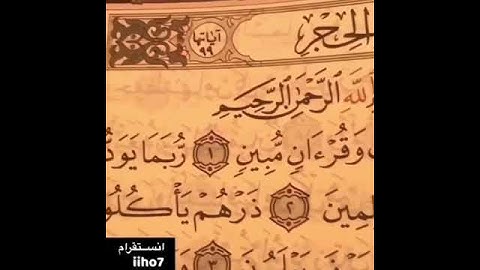 الحجر
آياتها
٩٩
الرَّحْمَٰنِ الرَّحِيمِ
وَقُرْءَانٍ مُّبِينٍ ١ رُّبَمَا يَوَدُّ
٢ ذَرْهُمْ يَأْكُلُوا
٣
انستقرام
iiho7